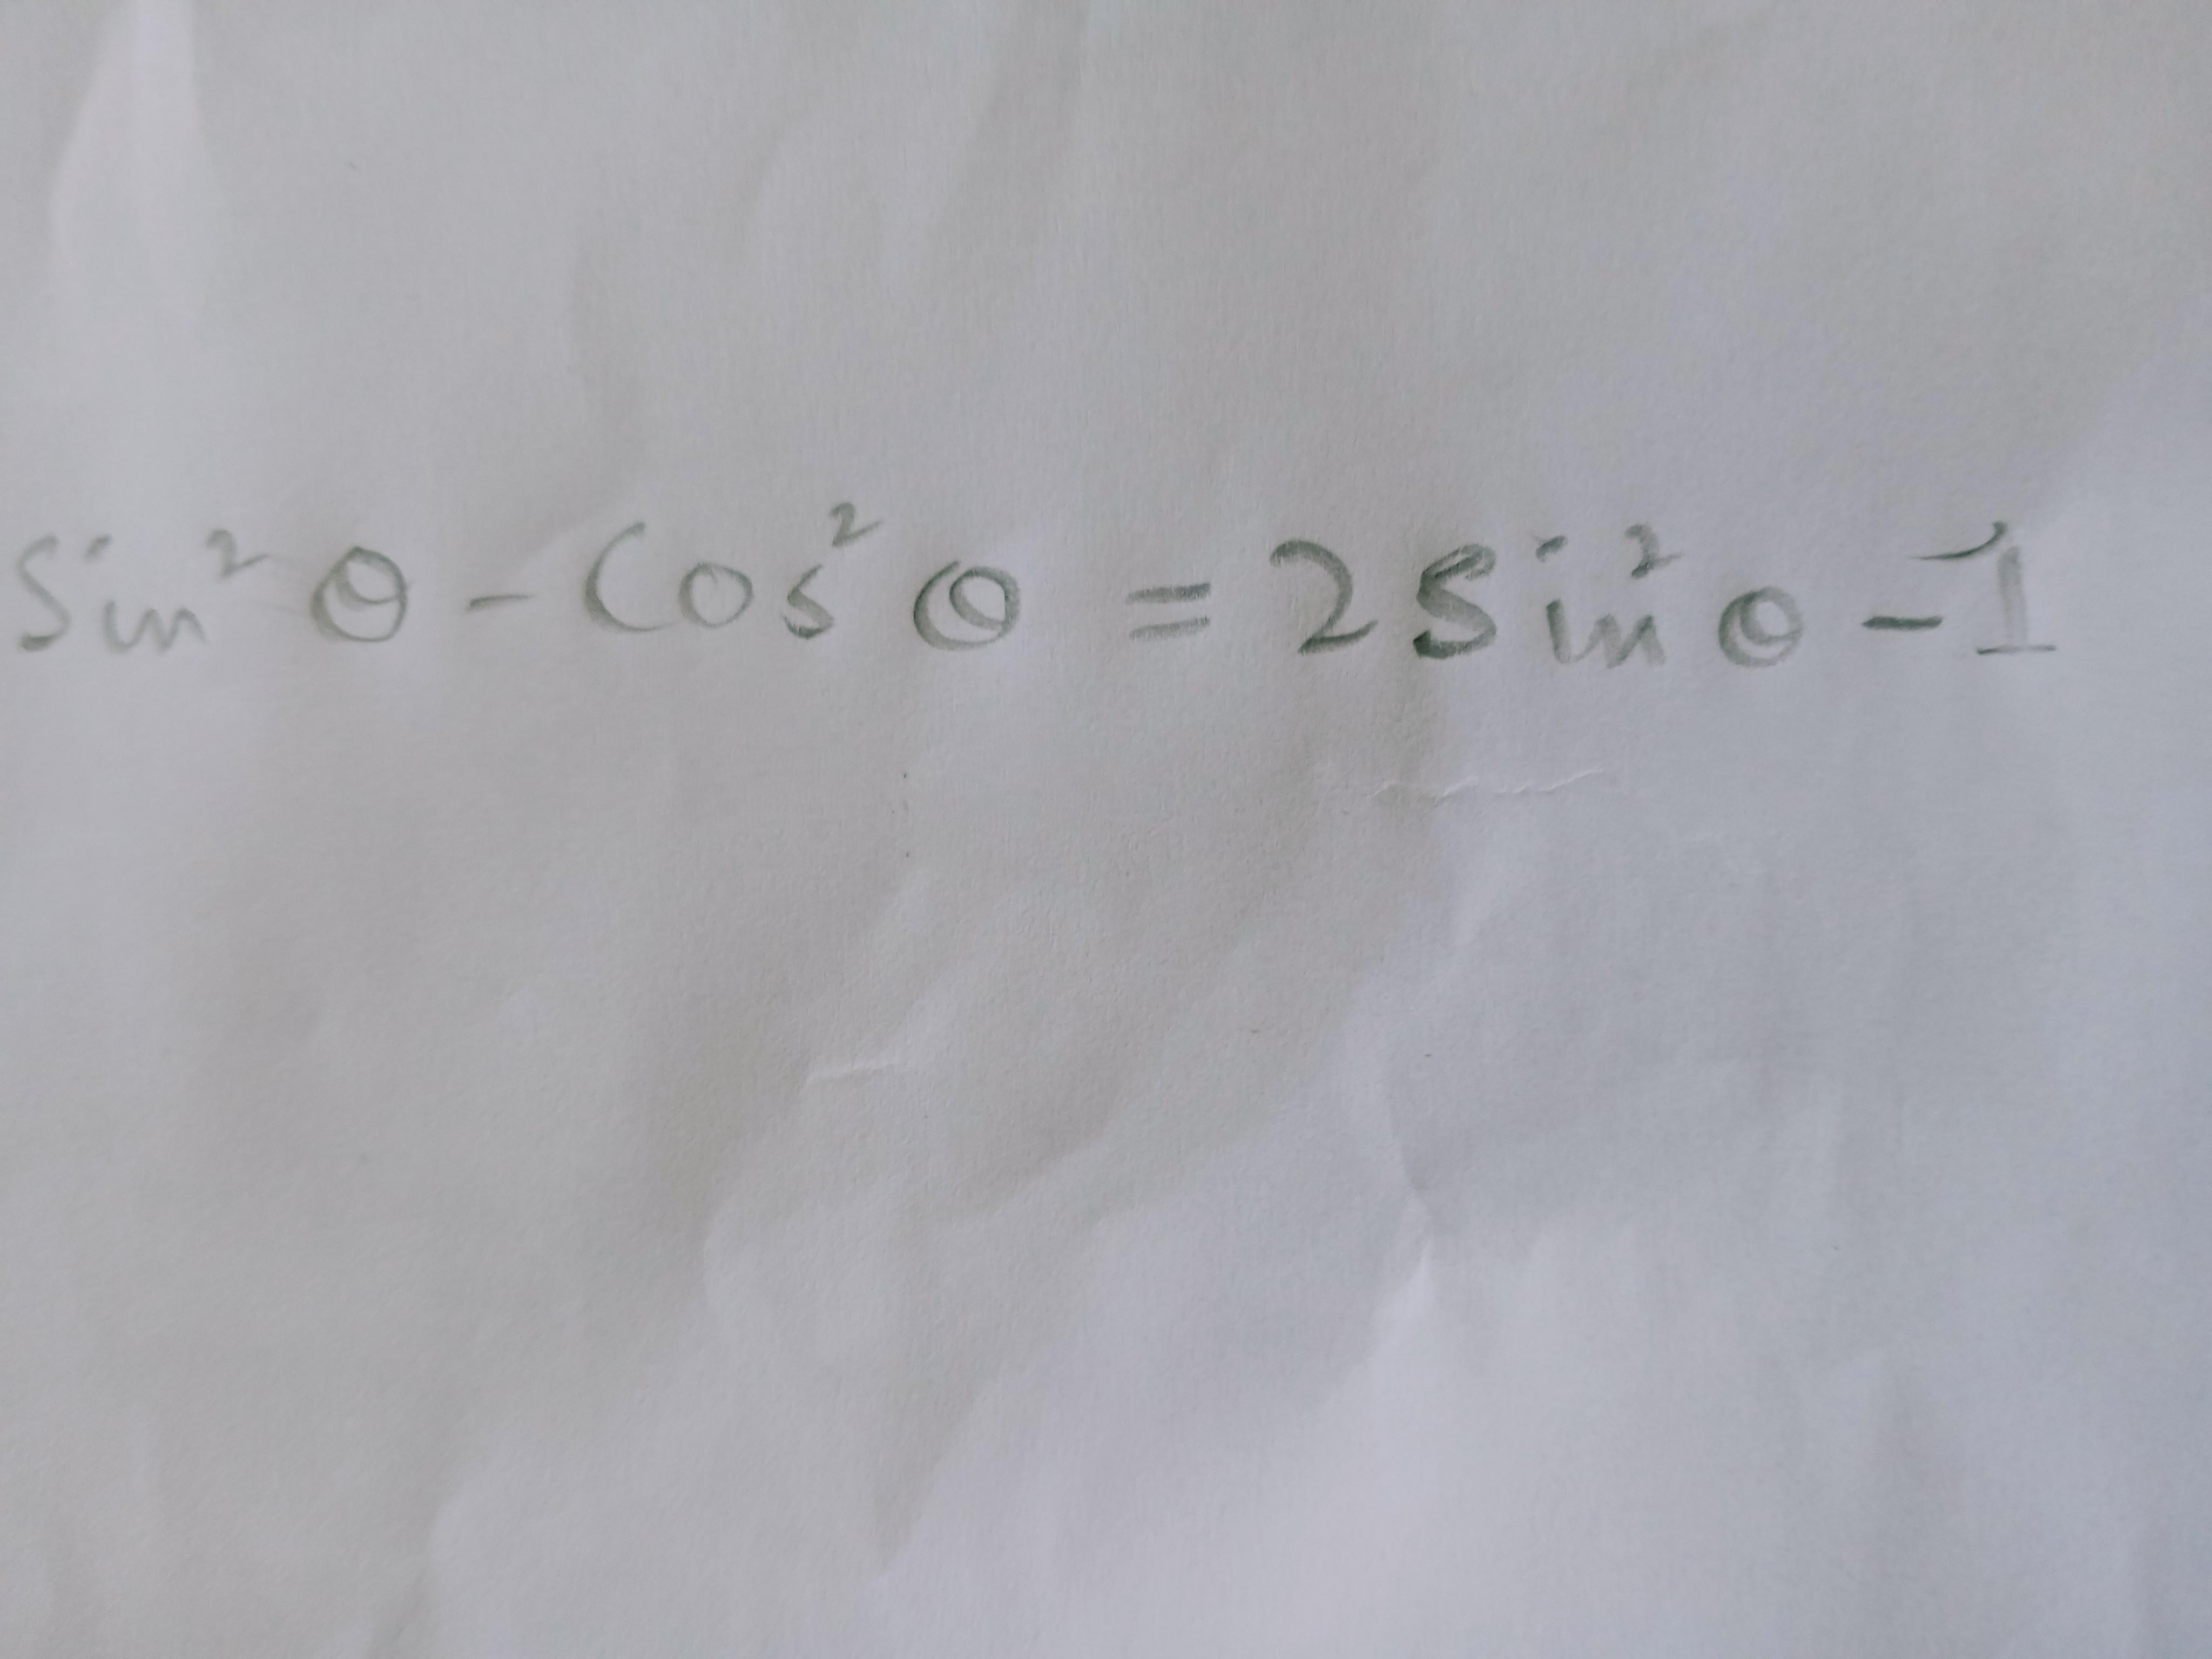 Sin²θ - Cos²θ = 2Sin²θ - 1